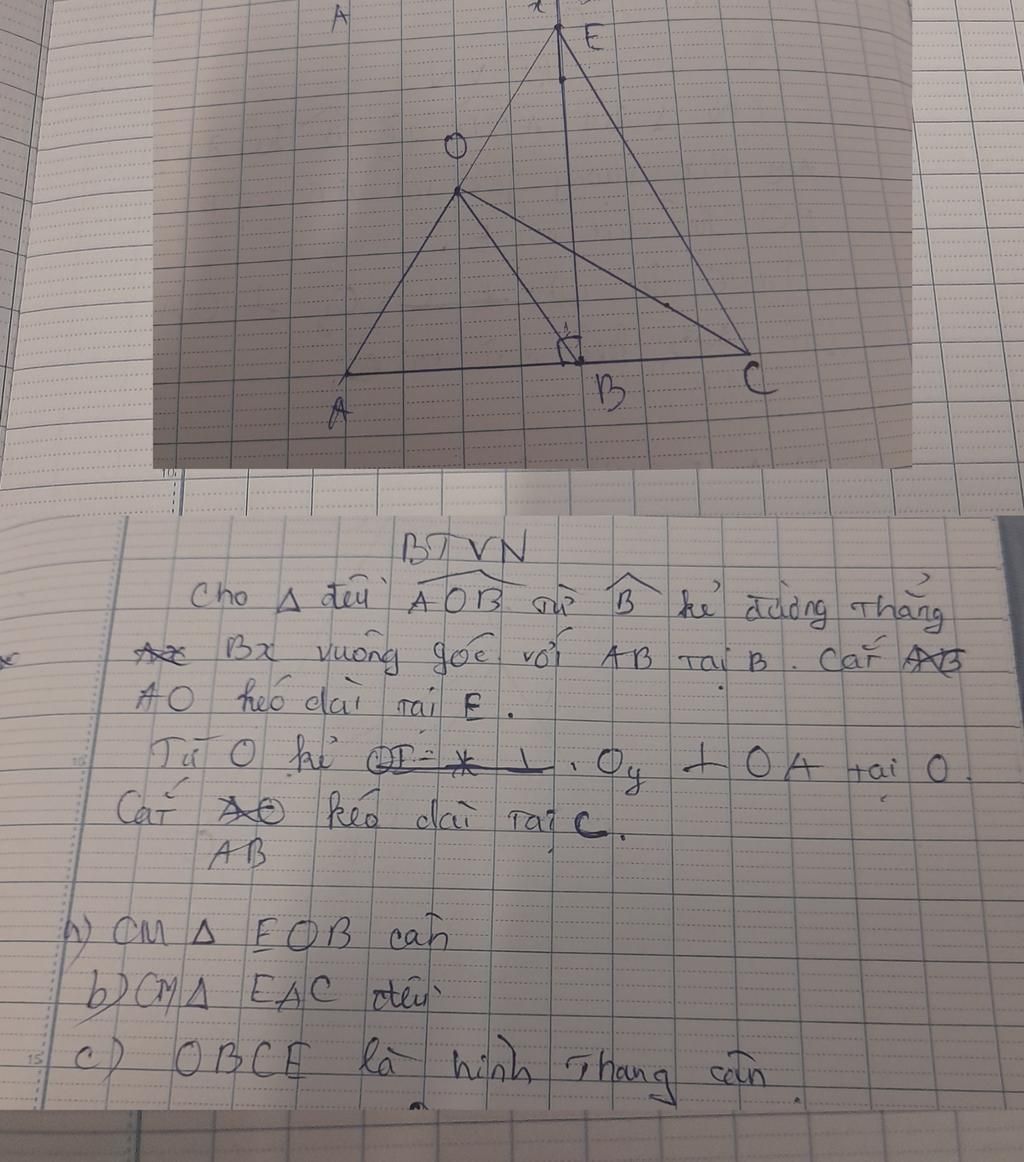 A
x
E
O
A
B
C
BTVN
Cho Δ đều AOB từ B kẻ đường thẳng
Bx vuông góc với AB tại B. Cắt
AO kéo dài tại E.
Từ O kẻ Oy ⊥ OA tại O.
Cắt kéo dài tại C.
AB
a) CM Δ EOB cân
b) CM Δ EAC đều
c) OBCE là hình thang cân.